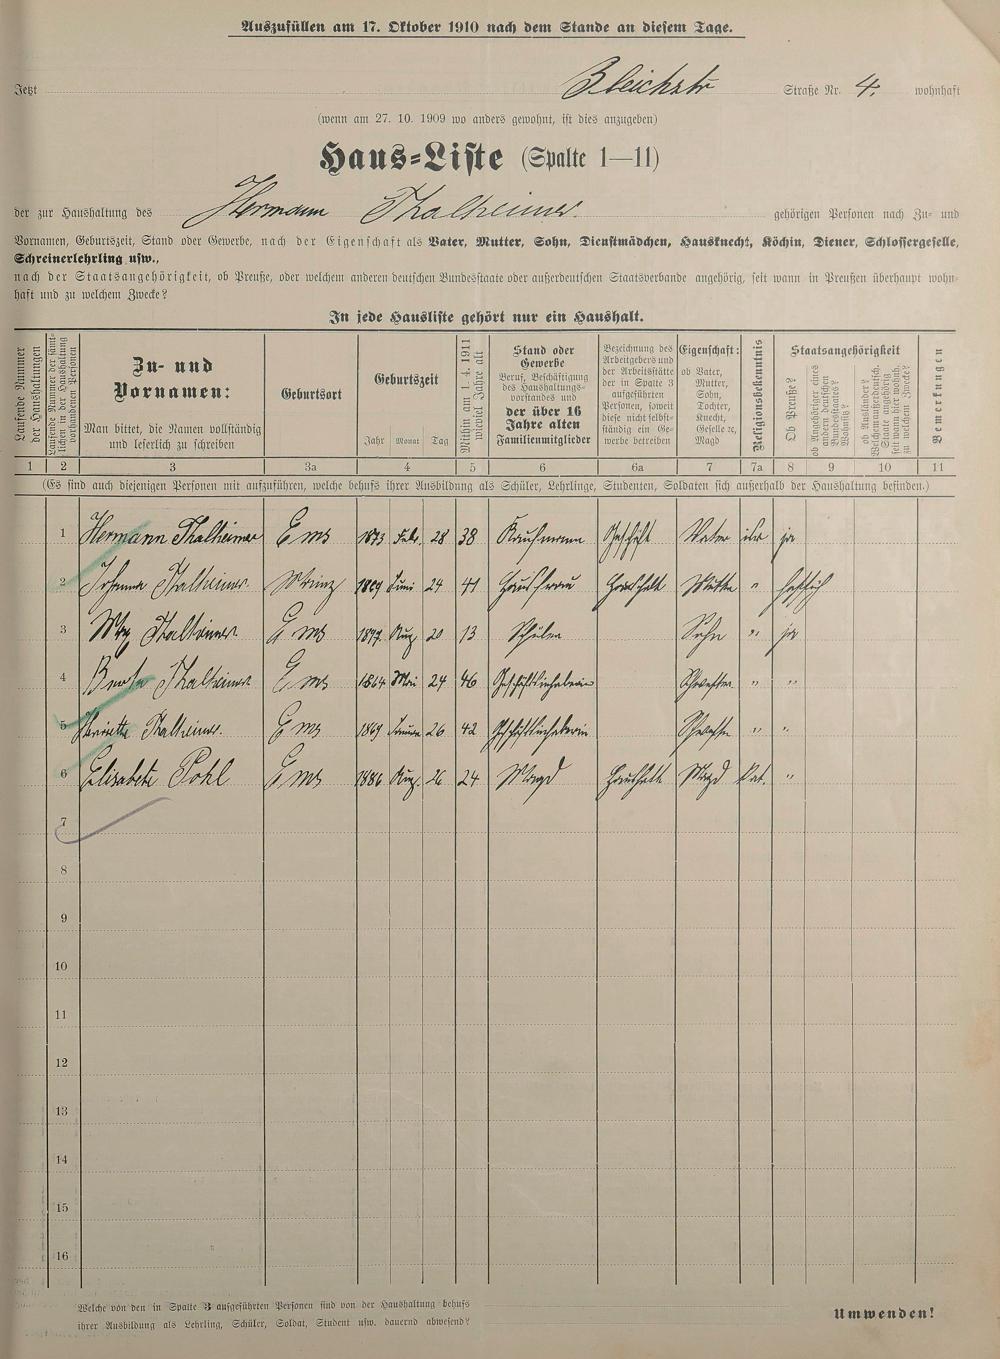 Auszufüllen am 17. Oktober 1910 nach dem Stande an diesem Tage.
Jetzt Bleichstr Straße Nr. 4. wohnhaft
(wenn am 27. 10. 1909 wo anders gewohnt, ist dies anzugeben)
Haus-Liste (Spalte 1—11)
der zur Haushaltung des Hermann Thalheimer. gehörigen Personen nach Zu- und
Vornamen, Geburtszeit, Stand oder Gewerbe, nach der Eigenschaft als Vater, Mutter, Sohn, Dienstmädchen, Hausknecht, Köchin, Diener, Schlossergeselle,
Schreinerlehrling usw.,
nach der Staatsangehörigkeit, ob Preuße, oder welchem anderen deutschen Bundesstaate oder außerdeutschen Staatsverbande angehörig, seit wann in Preußen überhaupt wohn-
haft und zu welchem Zwecke?
In jede Hausliste gehört nur ein Haushalt.
Laufende Nummer der Haushaltungen
Laufende Nummer der sämt-
lichen in der Haushaltung
vorhandenen Personen
Zu- und
Vornamen:
Man bittet, die Namen vollständig
und leserlich zu schreiben
Geburtsort
Geburtszeit
Jahr Monat Tag
Mithin am 1. 4. 1911
wieviel Jahre alt
Stand oder
Gewerbe
Beruf, Beschäftigung
des Haushaltungs-
vorstandes und
der über 16
Jahre alten
Familienmitglieder
Bezeichnung des
Arbeitgebers und
der Arbeitsstätte
der in Spalte 3
aufgeführten
Personen, soweit
diese nicht selbst-
ständig ein Ge-
werbe betreiben
Eigenschaft:
ob Vater,
Mutter,
Sohn,
Tochter,
Knecht,
Geselle ec,
Magd
Religionsbekenntnis
Staatsangehörigkeit
Ob Preuße?
ob Angehöriger eines
andern deutschen
Bundesstaates?
Wohnsitz?
ob Ausländer?
Welchem außerdeutsch.
Staate angehörig
seit wann hier wohnh.
zu welchem Zwecke?
Bemerkungen
1 2 3 3a 4 5 6 6a 7 7a 8 9 10 11
(Es sind auch diejenigen Personen mit aufzuführen, welche behufs ihrer Ausbildung als Schüler, Lehrlinge, Studenten, Soldaten sich außerhalb der Haushaltung befinden.)
1 Hermann Thalheimer Ems 1873 Febr. 28 38 Kaufmann Geschäft Vater isr ja
2 Johanna Thalheimer. Mainz 1869 Juni 24 41 Hausfrau Haushalt Mutter "
3 Max Thalheimer Ems 1897 Aug 20 13 Schüler Sohn " ja
4 Thalheimer Ems 1864 Mai 24 46 Geschäftsinhaberin Schwester " "
5 Henriette Thalheimer. Ems 1869 Januar 26 42 Geschäftsinhaberin Schwester " "
6 Elisabete Pohl Ems 1886 Aug. 26 24 Magd Haushalt Magd Kat. "
7
8
9
10
11
12
13
14
15
16
Welche von den in Spalte 3 aufgeführten Personen sind von der Haushaltung behufs
ihrer Ausbildung als Lehrling, Schüler, Soldat, Student usw. dauernd abwesend?
Umwenden!